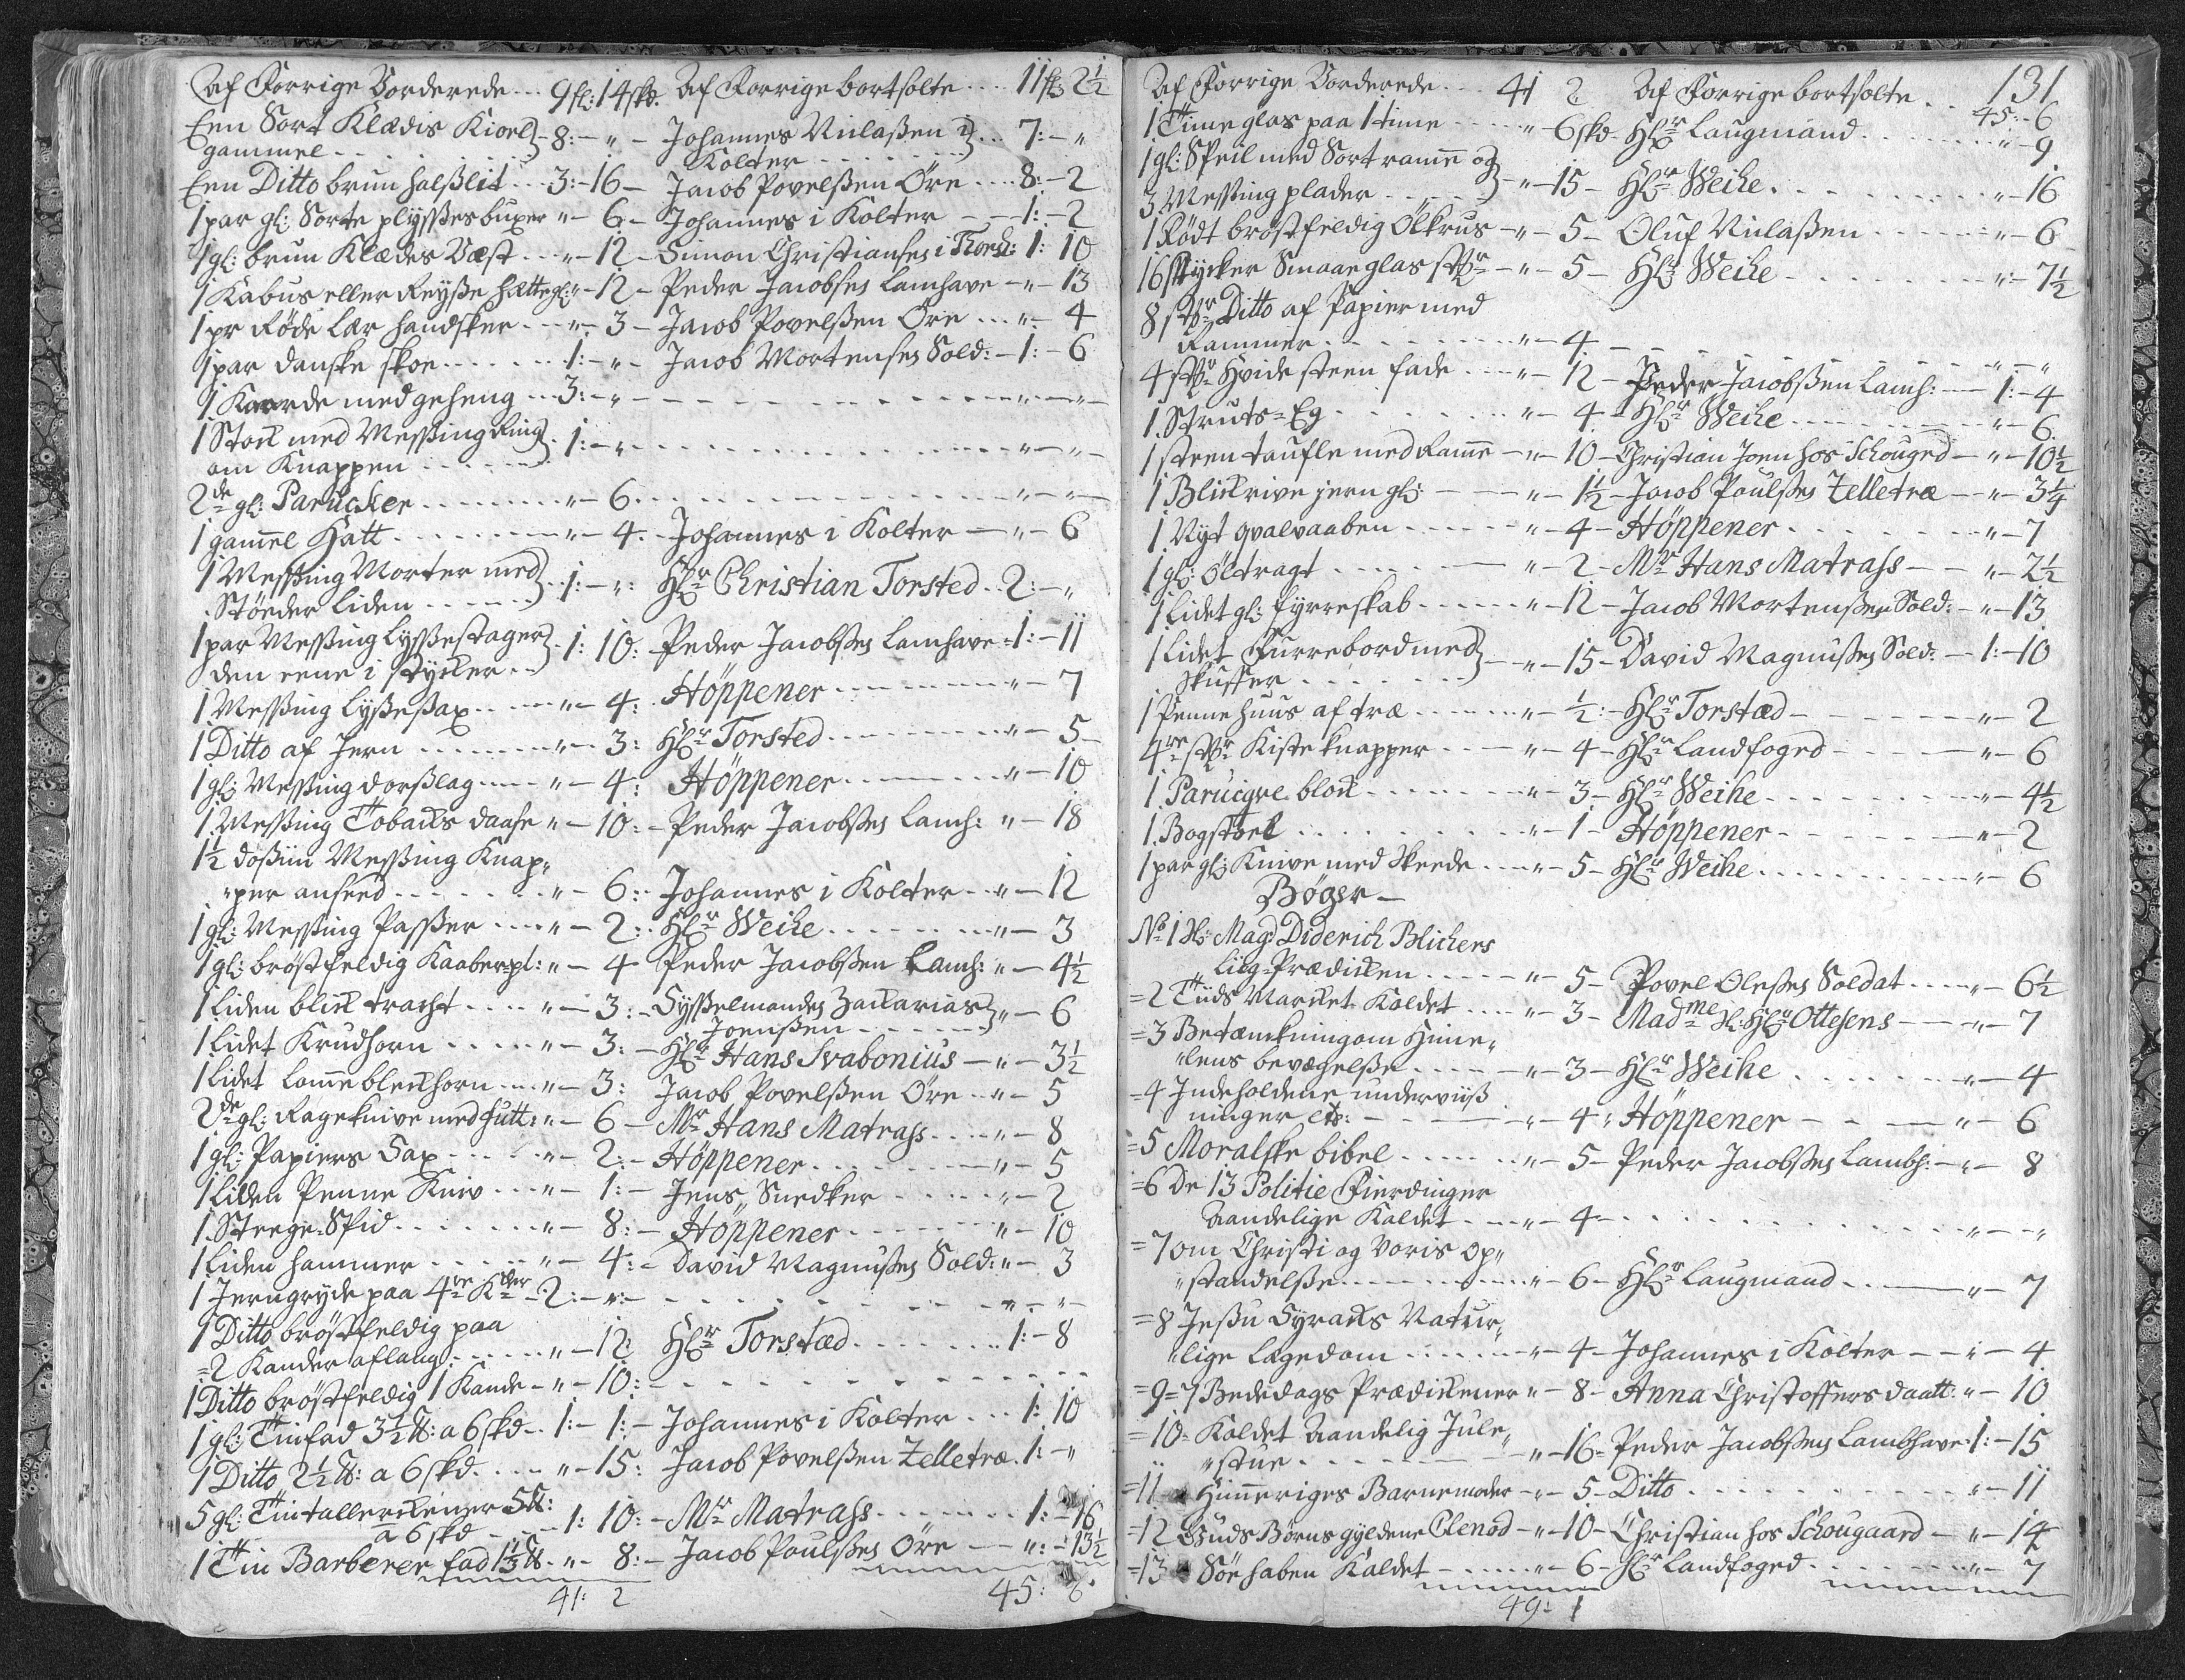 Af Forrige Vorderede... 9fl: 14skd. Af Forrige bortsolte.... 11fl: 2½
Een Sort Klædis Kiorl} 8:-„- Johannes Niclaßen i}... 7:-„
gammel.......... Kolter........
Een Ditto brun halßlit... 3:-16- Jacob Povelßen Öre.... 8:-2
1 par gl: Sorte plyßes buxer „- 6- Johannes i Kolter --- 1:-2
1 gl: brun Klædes Væst... „-12- Simon Christianses i Thorsh: 1: 10
1 Kabus eller Reyße hætte gl: „-12- Peder Jacobses Lamhave -„-13
1 pr Røde Lær handsker... „- 3- Jacob Povelßen Öre... „- 4
1 par danske skoe...... 1:-„- Jacob Mortenses Sold: -1:-6
1 Kaarde med geheng... 3:-„- - - - - - „-„-
1 Stock med Meßing Ring}. 1:-„- - - - - - „-„-
om Knappen......
2de gl: Parucker........ „- 6. - - - - - „-„-
1 gamel Hatt........ „- 4. - Johannes i Kolter - „- 6
1 Meßing Morter med}. 1:-„: Hl:r Christian Torsted.. 2:-„
Stöeder liden......
1 par Meßing lyßestager}. 1: 10: Peder Jacobses Lamhave -1:-11
den eene i stycker..
1 Meßing lyßesax..... „- 4: Höppener........ „- 7
1 Ditto af Jern........ „- 3: Hl:r Torsted........ „- 5-
1 gl: Meßing dorßlag.... „- 4: Höppener........ „-10
1 Meßing Tobacks daase „-10: - Peder Jacobses Lamh: „-18
1½ dosiin Meßing Knap„
„per anseed........ „- 6:- Johannes i Kolter... „-12
1 gl: Meßing Paßer.... „- 2:. Hl:r Weihe........ „- 3
1 gl: bröstfeldig Kaaber-pl: „- 4 Peder Jacobßen Lamh: „- 4½
1 liden blick tracht.... „- 3:- Syßelmandes Zacharias} „- 6
Joenßen.......
1 lidet Krudhorn..... „- 3:- Hl:r Hans Svabonius - „- 3½
1 lidet lomme bleckhorn.... „- 3: Jacob Povelßen Öre.. „- 5
2de gl: Rageknive med futt: „- 6- Mr Hans Matrass.... „- 8
1 gl: Papiers Sax..... „- 2:- Höppener....... „- 5
1 liden Penne Kniv... „- 1:- Jens Snedker...... „- 2
1 Steege-Spid....... „- 8:- Höppener........ „-10
1 liden hammer...... „- 4:- David Magnußes Sold: „- 3
1 Jerngryde paa 4re Kder -2:-„:- - - - - „-„-
1 Ditto bröstfeldig paa
=2 Kander aflang:..... „-12 Hl:r Torstæd........ 1:-8
1 Ditto bröstfeldig 1 Kande -„-10:- - - - -
1 gl: Tinfad 3½ ℔: a 6 skd.. 1:- 1:- Johannes i Kolter... 1: 10
1 Ditto 2½ ℔: a 6 skd..... „-15: Jacob Povelßen Zelletræ. 1:-„
5 gl: Tintallerckener 5℔:
a 6 skd.... 1: 10:- Mr Matrass....... 1:-16
1 Tin Barberer fad 1½℔. „- 8:- Jacob Paulßes Öre — „:-13½
41: 2 45: 6
131
Af Forrige Vorderede... 41 2. Af Forrige bortsolte.. 45:-6
1 Timeglas paa 1 time..... „- 6 skd. Hl:r Laugmand....... „- 9
1 gl: Speil med Sort rame og}
3 Meßing plader.....} „-15- Hl:r Weihe........ „-16
1 Rödt bröstfeldig Ölkrus -„- 5- Oluf Niclaßen...... „- 6
16 Stycker Smaaeglas stkr -„- 5- Hl:r Weihe...... „:-7½
8 stkr Ditto af Papier med
Rammer........ „- 4- - - - - „-„
4 stkr Hvide steen fade... „- 12- Peder Jacobßen Lamh: — 1:-4
1 Struts=Eg........ „- 4- Hl:r Weihe........ „- 6
1 steen taufle med Rame - „- 10- Christian Joen hos Schougrd - „-10½
1 Blickrive jern gl: - - „- 1½- Jacob Paulßes Zelletræ - „- 3¼
1 Nyt qvalvaaben...... „- 4- Höppener....... „- 7
1 gl: Öltragt....... „- 2- Mr Hans Matrass - - „- 2½
1 lidet gl: fyrreskab...... „-12- Jacob Mortenßen Sold: - „-13
1 lidet Furrebord med}
skuffer........} „-15- David Magnußes Sold: - 1:-10
1 Pennehuus af træ..... „- ½:- Hl:r Torstæd - - - „- 2
4re stkr Kiste knapper.. - „- 4- Hl:r Landfoged - - - „- 6
1 Parucqve block....... „- 3- Hl:r Weihe....... „- 4½
1 Bogstoel........ „- 1- Höppener - - - „- 2
1 par gl: Knive med Skeede.... „- 5- Hl:r Weihe......... „- 6
Bøger-
No 1 Hr: Mag: Diderich Blichers
liig-Prædicken..... „- 5- Povel Oleßes Soldat.... „- 6½
=2 Tiids Marcket Kaldet.... „- 3- Madme Sl: Hl:r Ottesens - - „- 7
=3 Betænckning om Hime„
„lens bevægelße..... „- 3- Hl:r Weihe....... „- 4
=4 Indeholdene underviiß
ninger etc: - - - „- 4: Höppener - - - „- 6
=5 Moralske bibel...... „- 5- Peder Jacobßes Lambh: - „- 8
=6 De 13 Politie Fierdinger
Aandelige Kaldet.... „- 4- - - - - „-„
=7 om Christi og Voris op„
„standelße........ „- 6- Hl:r Laugmand... - „- 7
=8 Jesu Syrachs Natur„
„lige lægedom....... „- 4- Johannes i Kolter - - „- 4
=9=7 Bededags Prædickener „- 8- Anna Christoffers daatt: „- 10
=10= Kaldet Aandelig Jule„
„stue........ „-16- Peder Jacobßes Lambhave 1:-15
=11 Himeriges Barnemoder - „- 5- Ditto......... „-11
=12 Guds Børns gyldene Clenod - „-10- Christian hos Schougaard - „-14
=13 Söe haben Kaldet - ..... „- 6- Hl:r Landfoged....... „- 7
49: 1